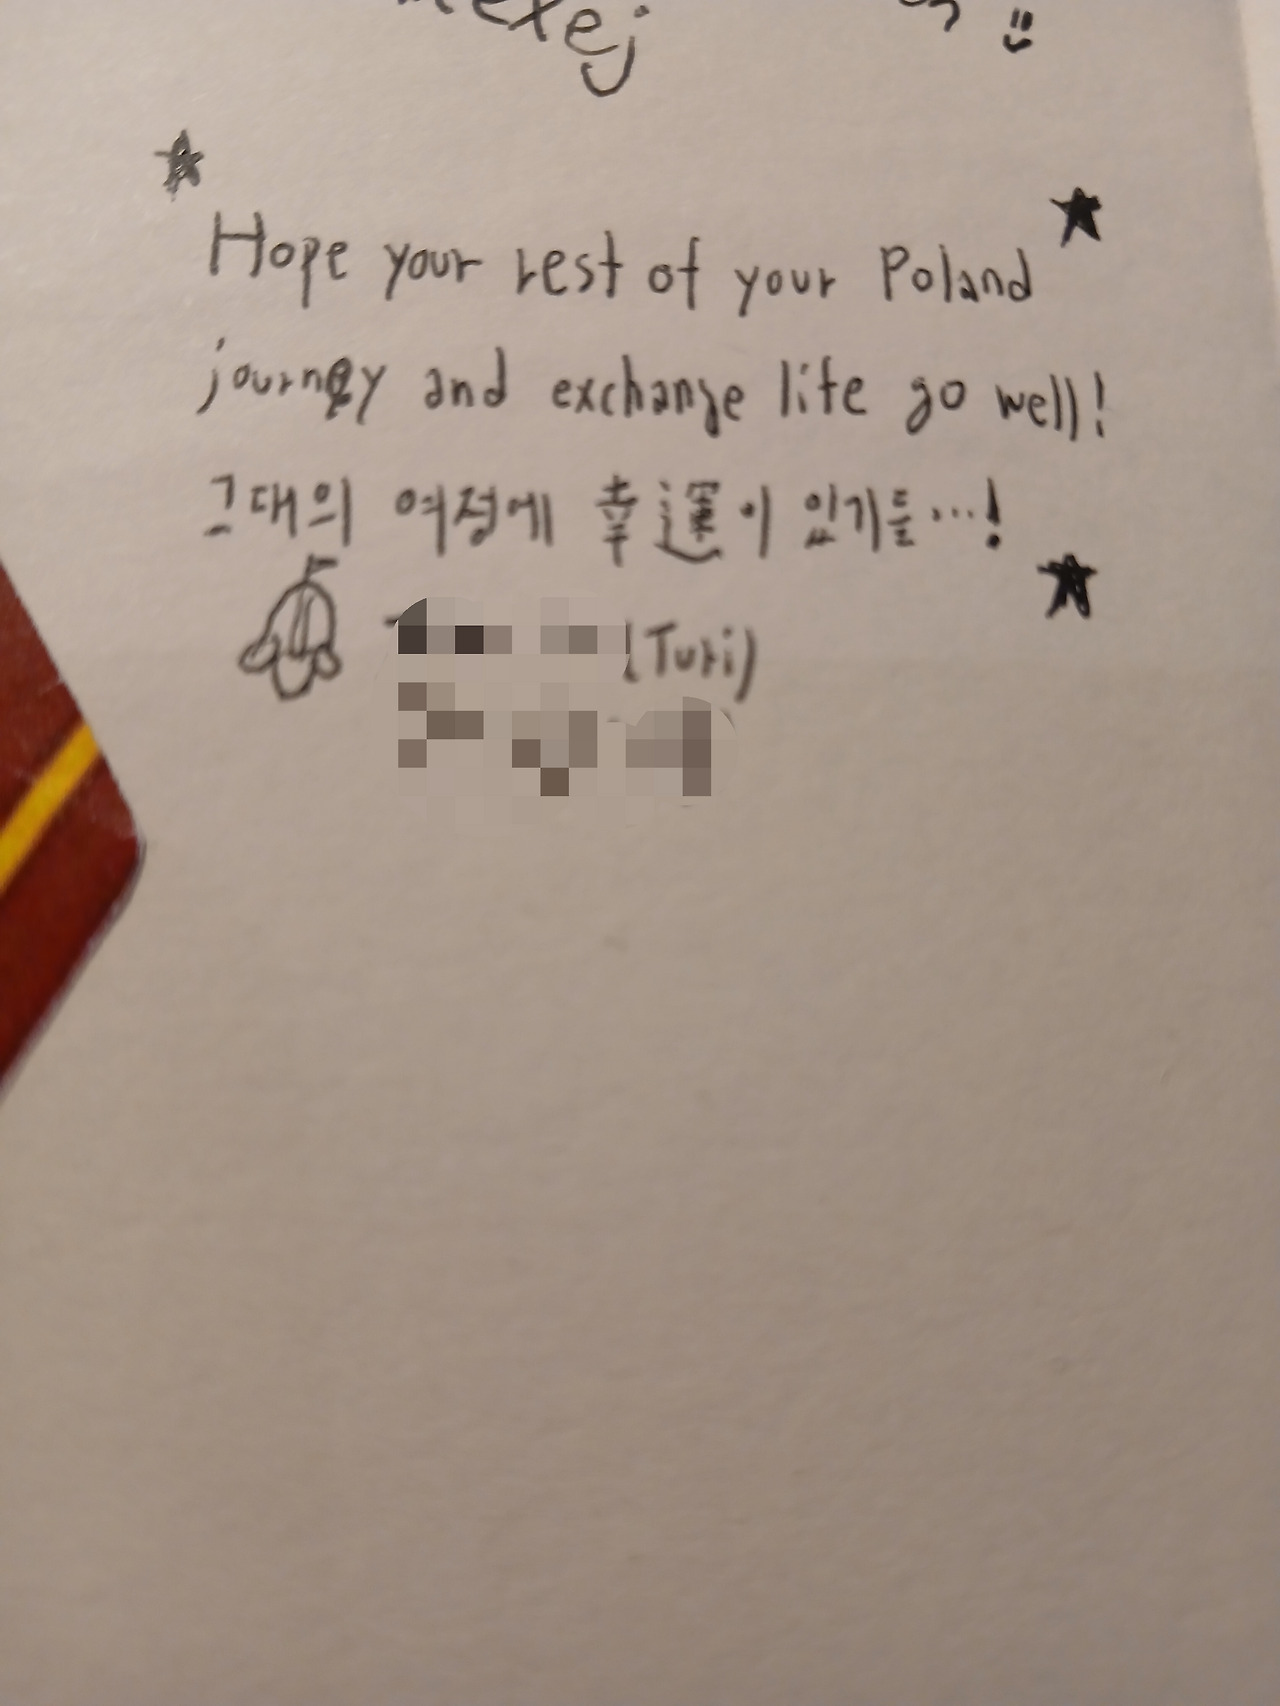 Hope your rest of your Poland
journey and exchange life go well!
그대의 여정에 幸運이 있기를...!
(Turi)